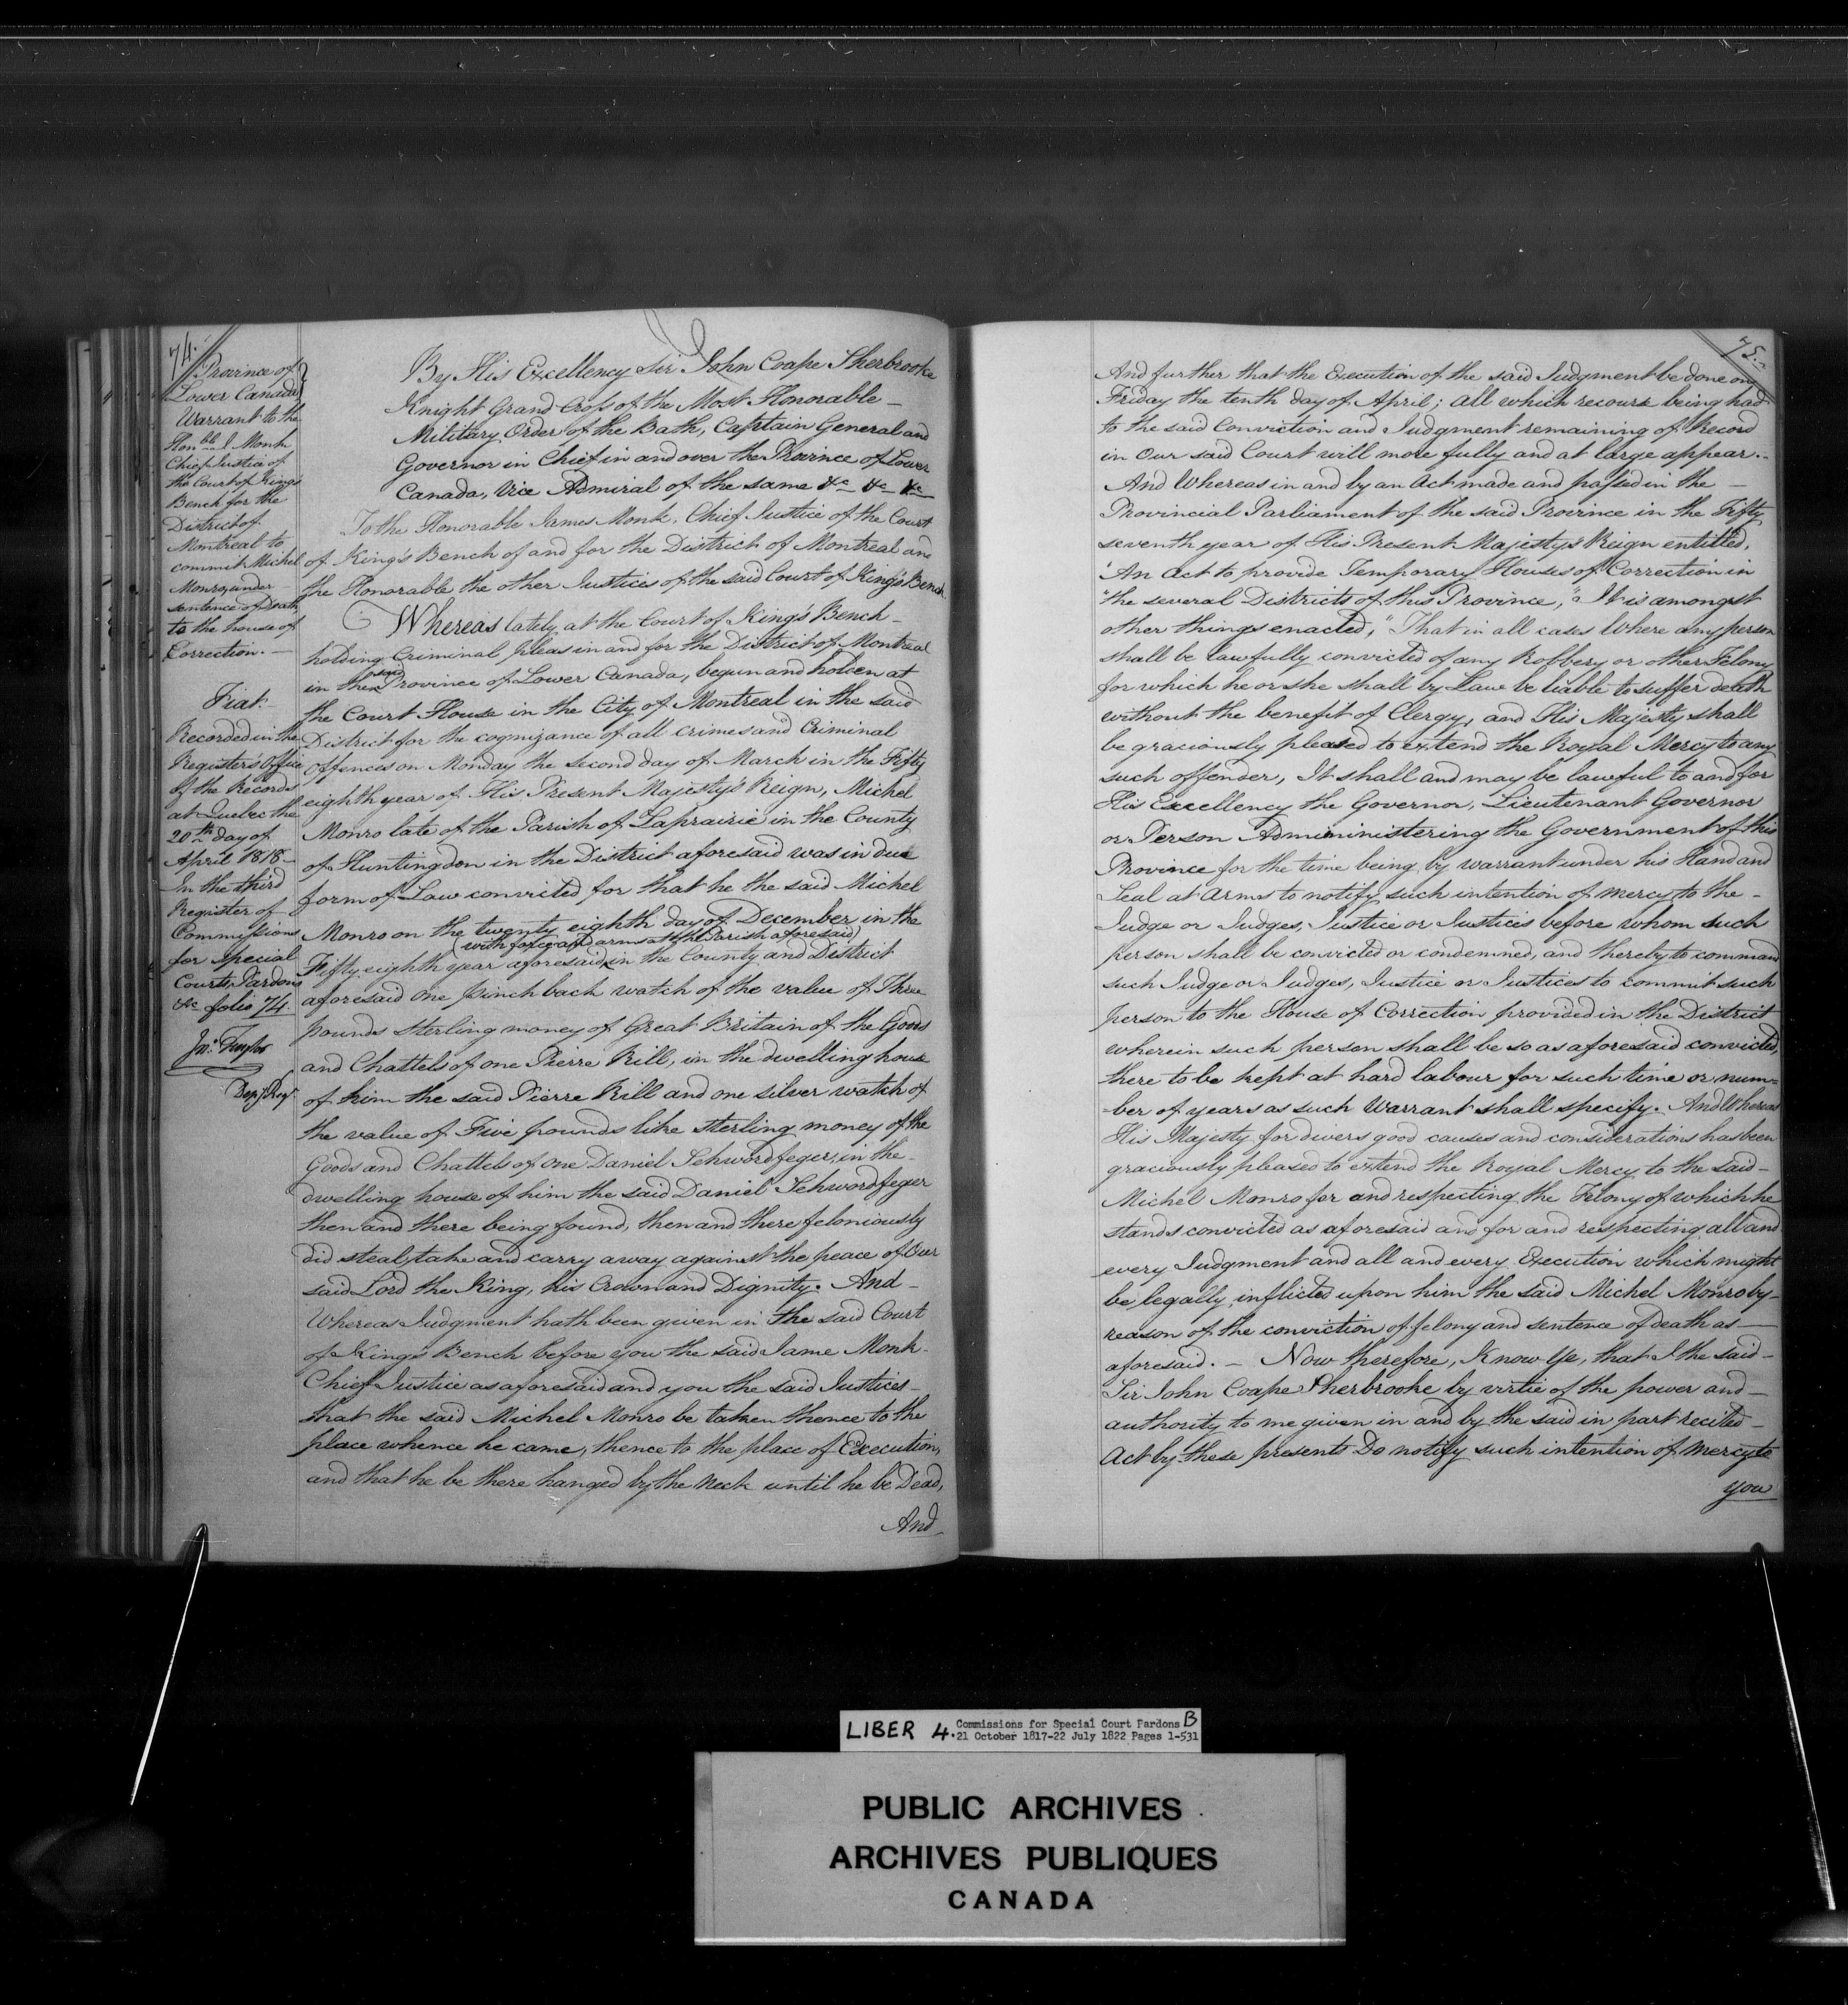 74.
Province of
Lower Canada
Warrant to the
Honble J. Monk
Chief Justice of
the Court of Kings
Bench for the
District of
Montreal to
commit Michel
Monro, under
sentence of Death,
to the house of
Correction. —
Fiat.
Recorded in the
Registers Office
of the Records
at Quebec the
20th day of
April 1818 —
In the third
Register of
Commissions
for Special
Courts, Pardons
&c folio 74.
Jno. Taylor
Depy. Regr.
By His Excellency Sir John Coape Sherbrooke
Knight Grand Cross of the Most Honorable —
Military Order of the Bath, Captain General and
Governor in Chief in and over the Province of Lower
Canada, Vice Admiral of the same &c &c &c
To the Honorable James Monk, Chief Justice of the Court
of King's Bench of and for the District of Montreal and
the Honorable the other Justices of the said Court of King's Bench
Whereas lately at the Court of King's Bench —
holding Criminal pleas in and for the District of Montreal
in the said Province of Lower Canada, begun and holden at
the Court House in the City of Montreal in the said
District for the cognizance of all crimes and Criminal
Offences on Monday the second day of March in the Fifty
eighth year of His Present Majesty's Reign, Michel
Monro late of the Parish of Laprairie in the County
of Huntingdon in the District aforesaid was in due
form of Law convicted for that he the said Michel
Monro on the twenty eighth day of December in the
(with force and arms at the Parish aforesaid)
Fifty eighth year aforesaid in the County and District
aforesaid one pinchback watch of the value of Three
pounds sterling money of Great Britain of the Goods
and Chattels of one Pierre Rill, in the dwelling house
of him the said Pierre Rill and one silver watch of
the value of Five pounds like sterling money of the
Goods and Chattels of one Daniel Schwordfeger, in the —
dwelling house of him the said Daniel Schwordfeger
then and there being found, then and there feloniously
did steal, take and carry away against the peace of Our
said Lord the King, his Crown and Dignity. And —
Whereas Judgment hath been given in the said Court
of King's Bench before you the said Jame Monk —
Chief Justice as aforesaid and you the said Justices —
that the said Michel Monro be taken thence to the
place whence he came, thence to the place of Execution,
and that he be there hanged by the Neck until he be Dead,
And
75.
And further that the Execution of the said Judgment be done on
Friday the tenth day of April; all which recourse being had
to the said Conviction and Judgment remaining of Record
in Our said Court will more fully and at large appear. —
And Whereas in and by an Act made and passed in the —
Provincial Parliament of the said Province in the Fifty
seventh year of His Present Majesty's Reign entitled,
"An Act to provide Temporary Houses of Correction in
"the several Districts of this Province," It is amongst
other things enacted, "That in all cases Where any person
shall be lawfully convicted of any Robbery or other Felony
for which he or she shall by Law be liable to suffer death
without the benefit of Clergy, and His Majesty shall
be graciously pleased to extend the Royal Mercy to any
such offender, It shall and may be lawful to and for
His Excellency the Governor, Lieutenant Governor
or Person Admininistering the Government of this
Province for the time being by warrant under his Hand and
Seal at Arms to notify such intention of mercy to the —
Judge or Judges, Justice or Justices before whom such
person shall be convicted or condemned, and thereby to command
such Judge or Judges, Justice or Justices to commit such
person to the House of Correction provided in the District
wherein such person shall be so as aforesaid convicted,
there to be kept at hard labour for such time or num=
=ber of years as such Warrant shall specify. And Whereas
His Majesty for divers good causes and considerations has been
graciously pleased to extend the Royal Mercy to the said —
Michel Monro for and respecting the Felony of which he
stands convicted as aforesaid and for and respecting all and
every Judgment and all and every Execution which might
be legally inflicted upon him the said Michel Monro by —
reason of the conviction of felony and sentence of death as —
aforesaid. — Now therefore, Know Ye, that I the said —
Sir John Coape Sherbrooke by virtue of the power and —
authority to me given in and by the said in part recited —
Act by these presents Do notify such intention of mercy to
you
LIBER 4. Commissions for Special Court Pardons B
21 October 1817-22 July 1822 Pages 1-531
PUBLIC ARCHIVES
ARCHIVES PUBLIQUES
CANADA